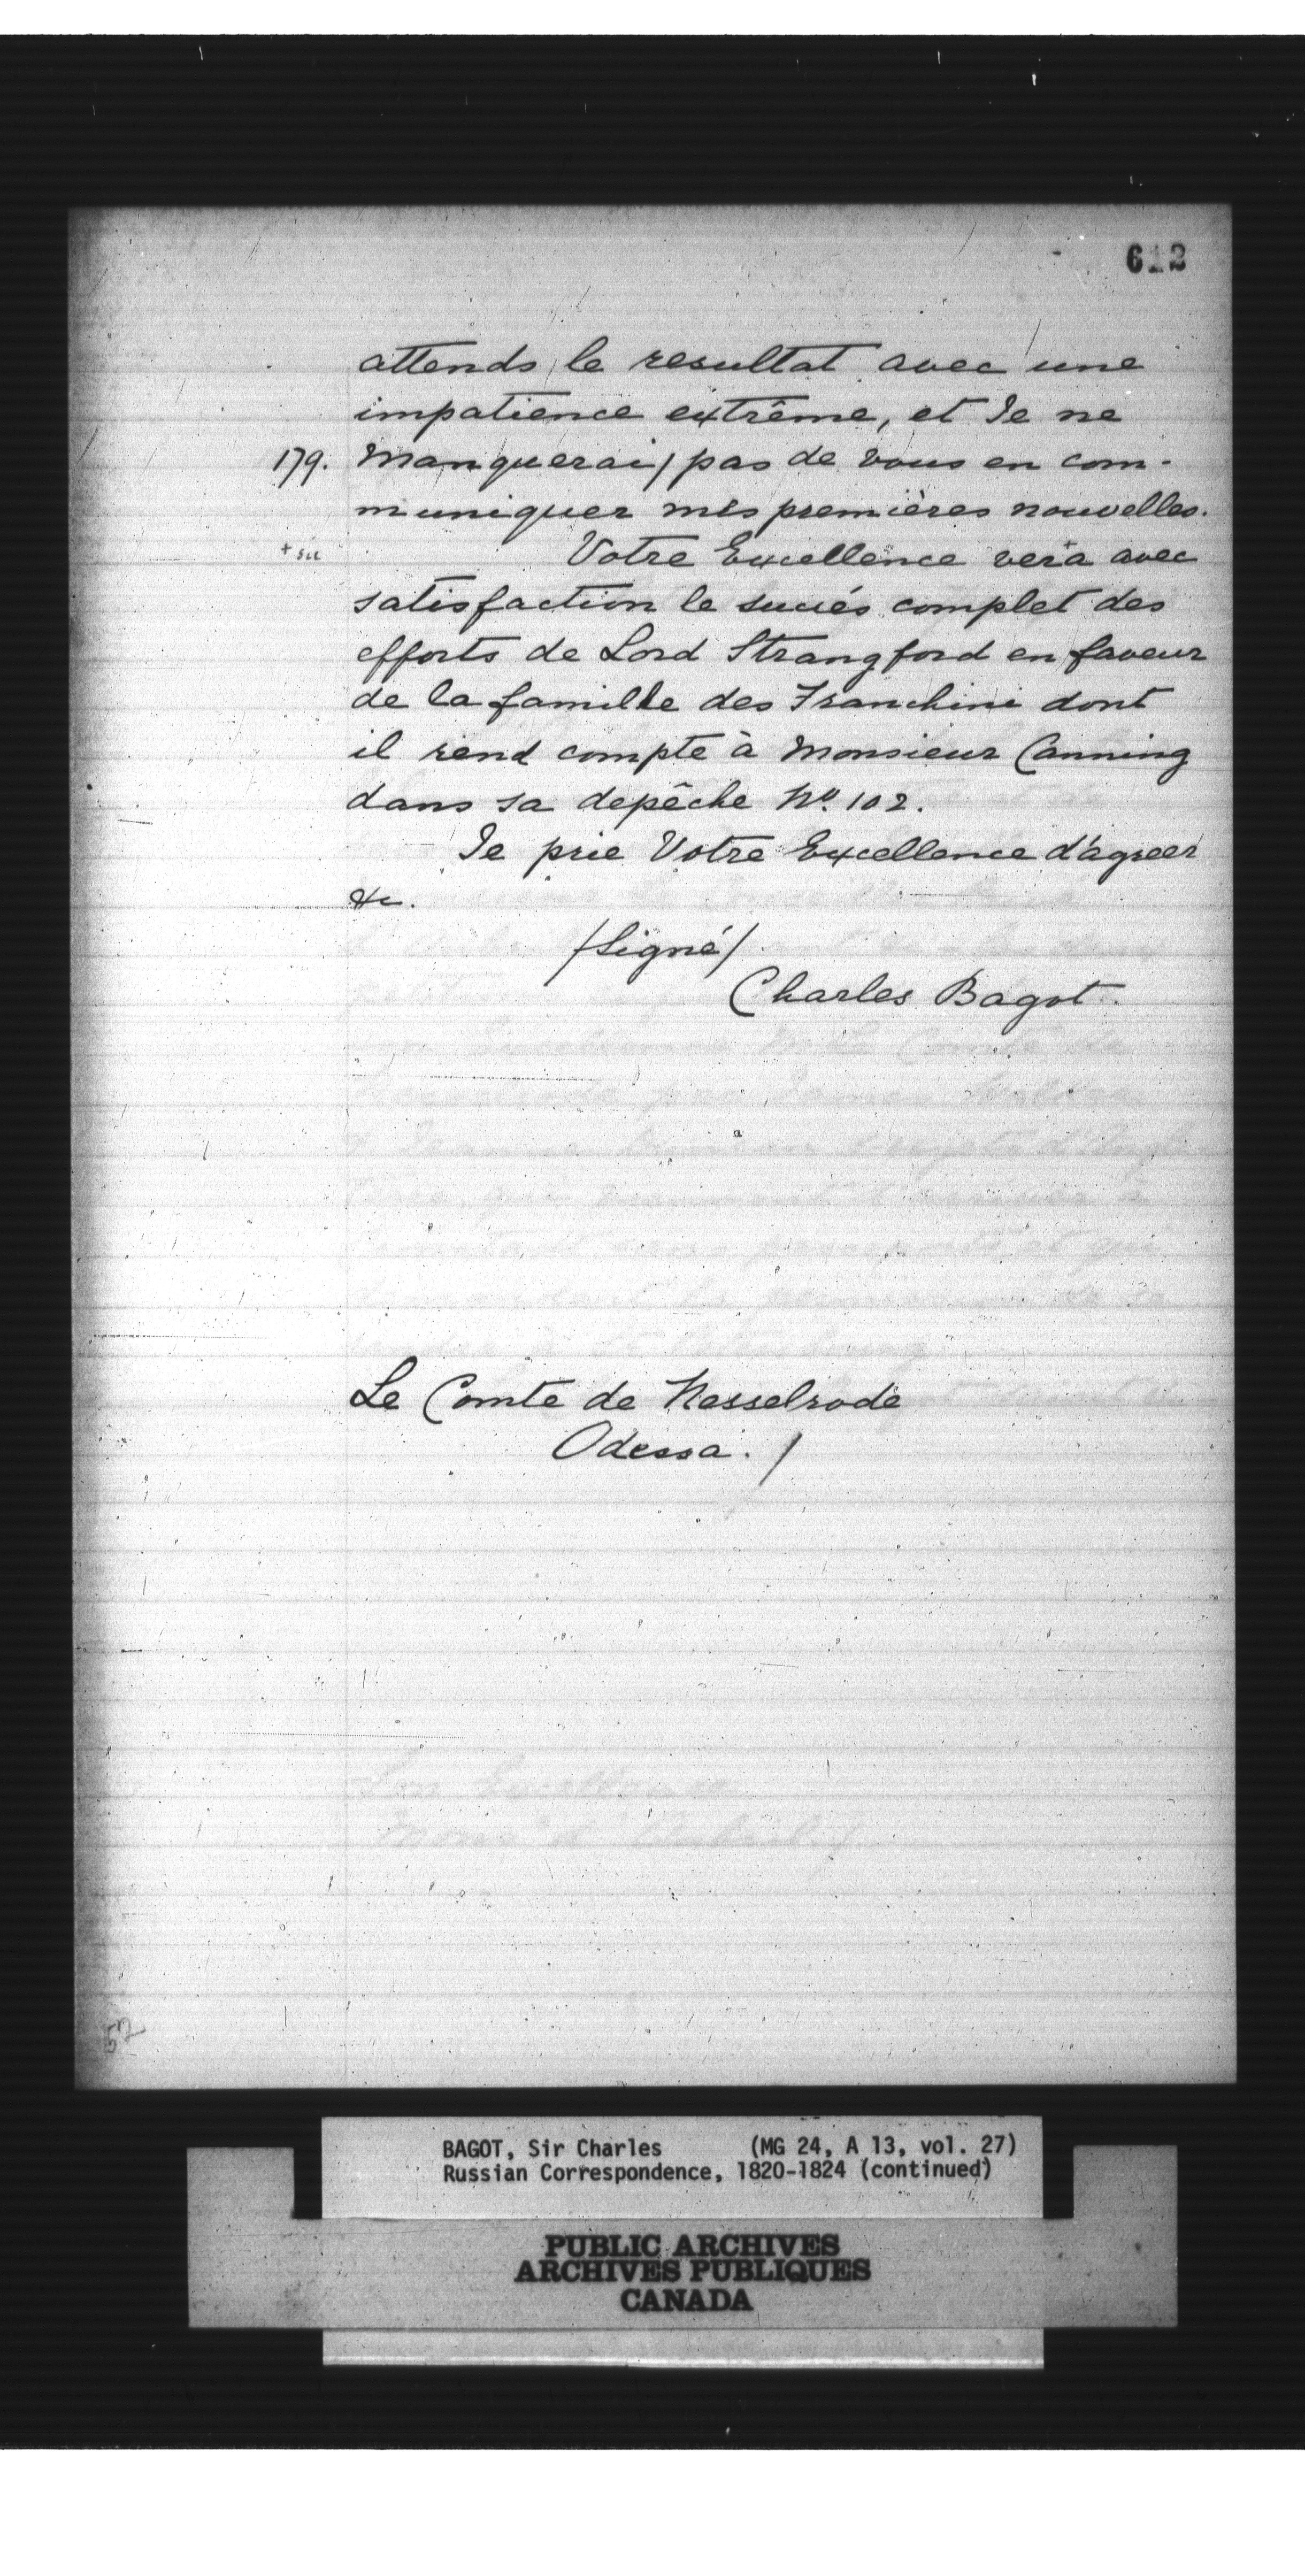 612
attends le resultat avec une
impatience extrême, et Je ne
179. manquerai / pas de vous en com-
muniquer mes premières nouvelles.
+ sic Votre Excellence vera+ avec
satisfaction le succés complet des
efforts de Lord Strangford en faveur
de la famille des Franchini dont
il rend compte à Monsieur Canning
dans sa depêche No. 102.
Je prie Votre Excellence d'agreer
&c.
/Signé/
Charles Bagot.
Le Comte de Nesselrode
Odessa. /
BAGOT, Sir Charles (MG 24, A 13, vol. 27)
Russian Correspondence, 1820-1824 (continued)
PUBLIC ARCHIVES
ARCHIVES PUBLIQUES
CANADA